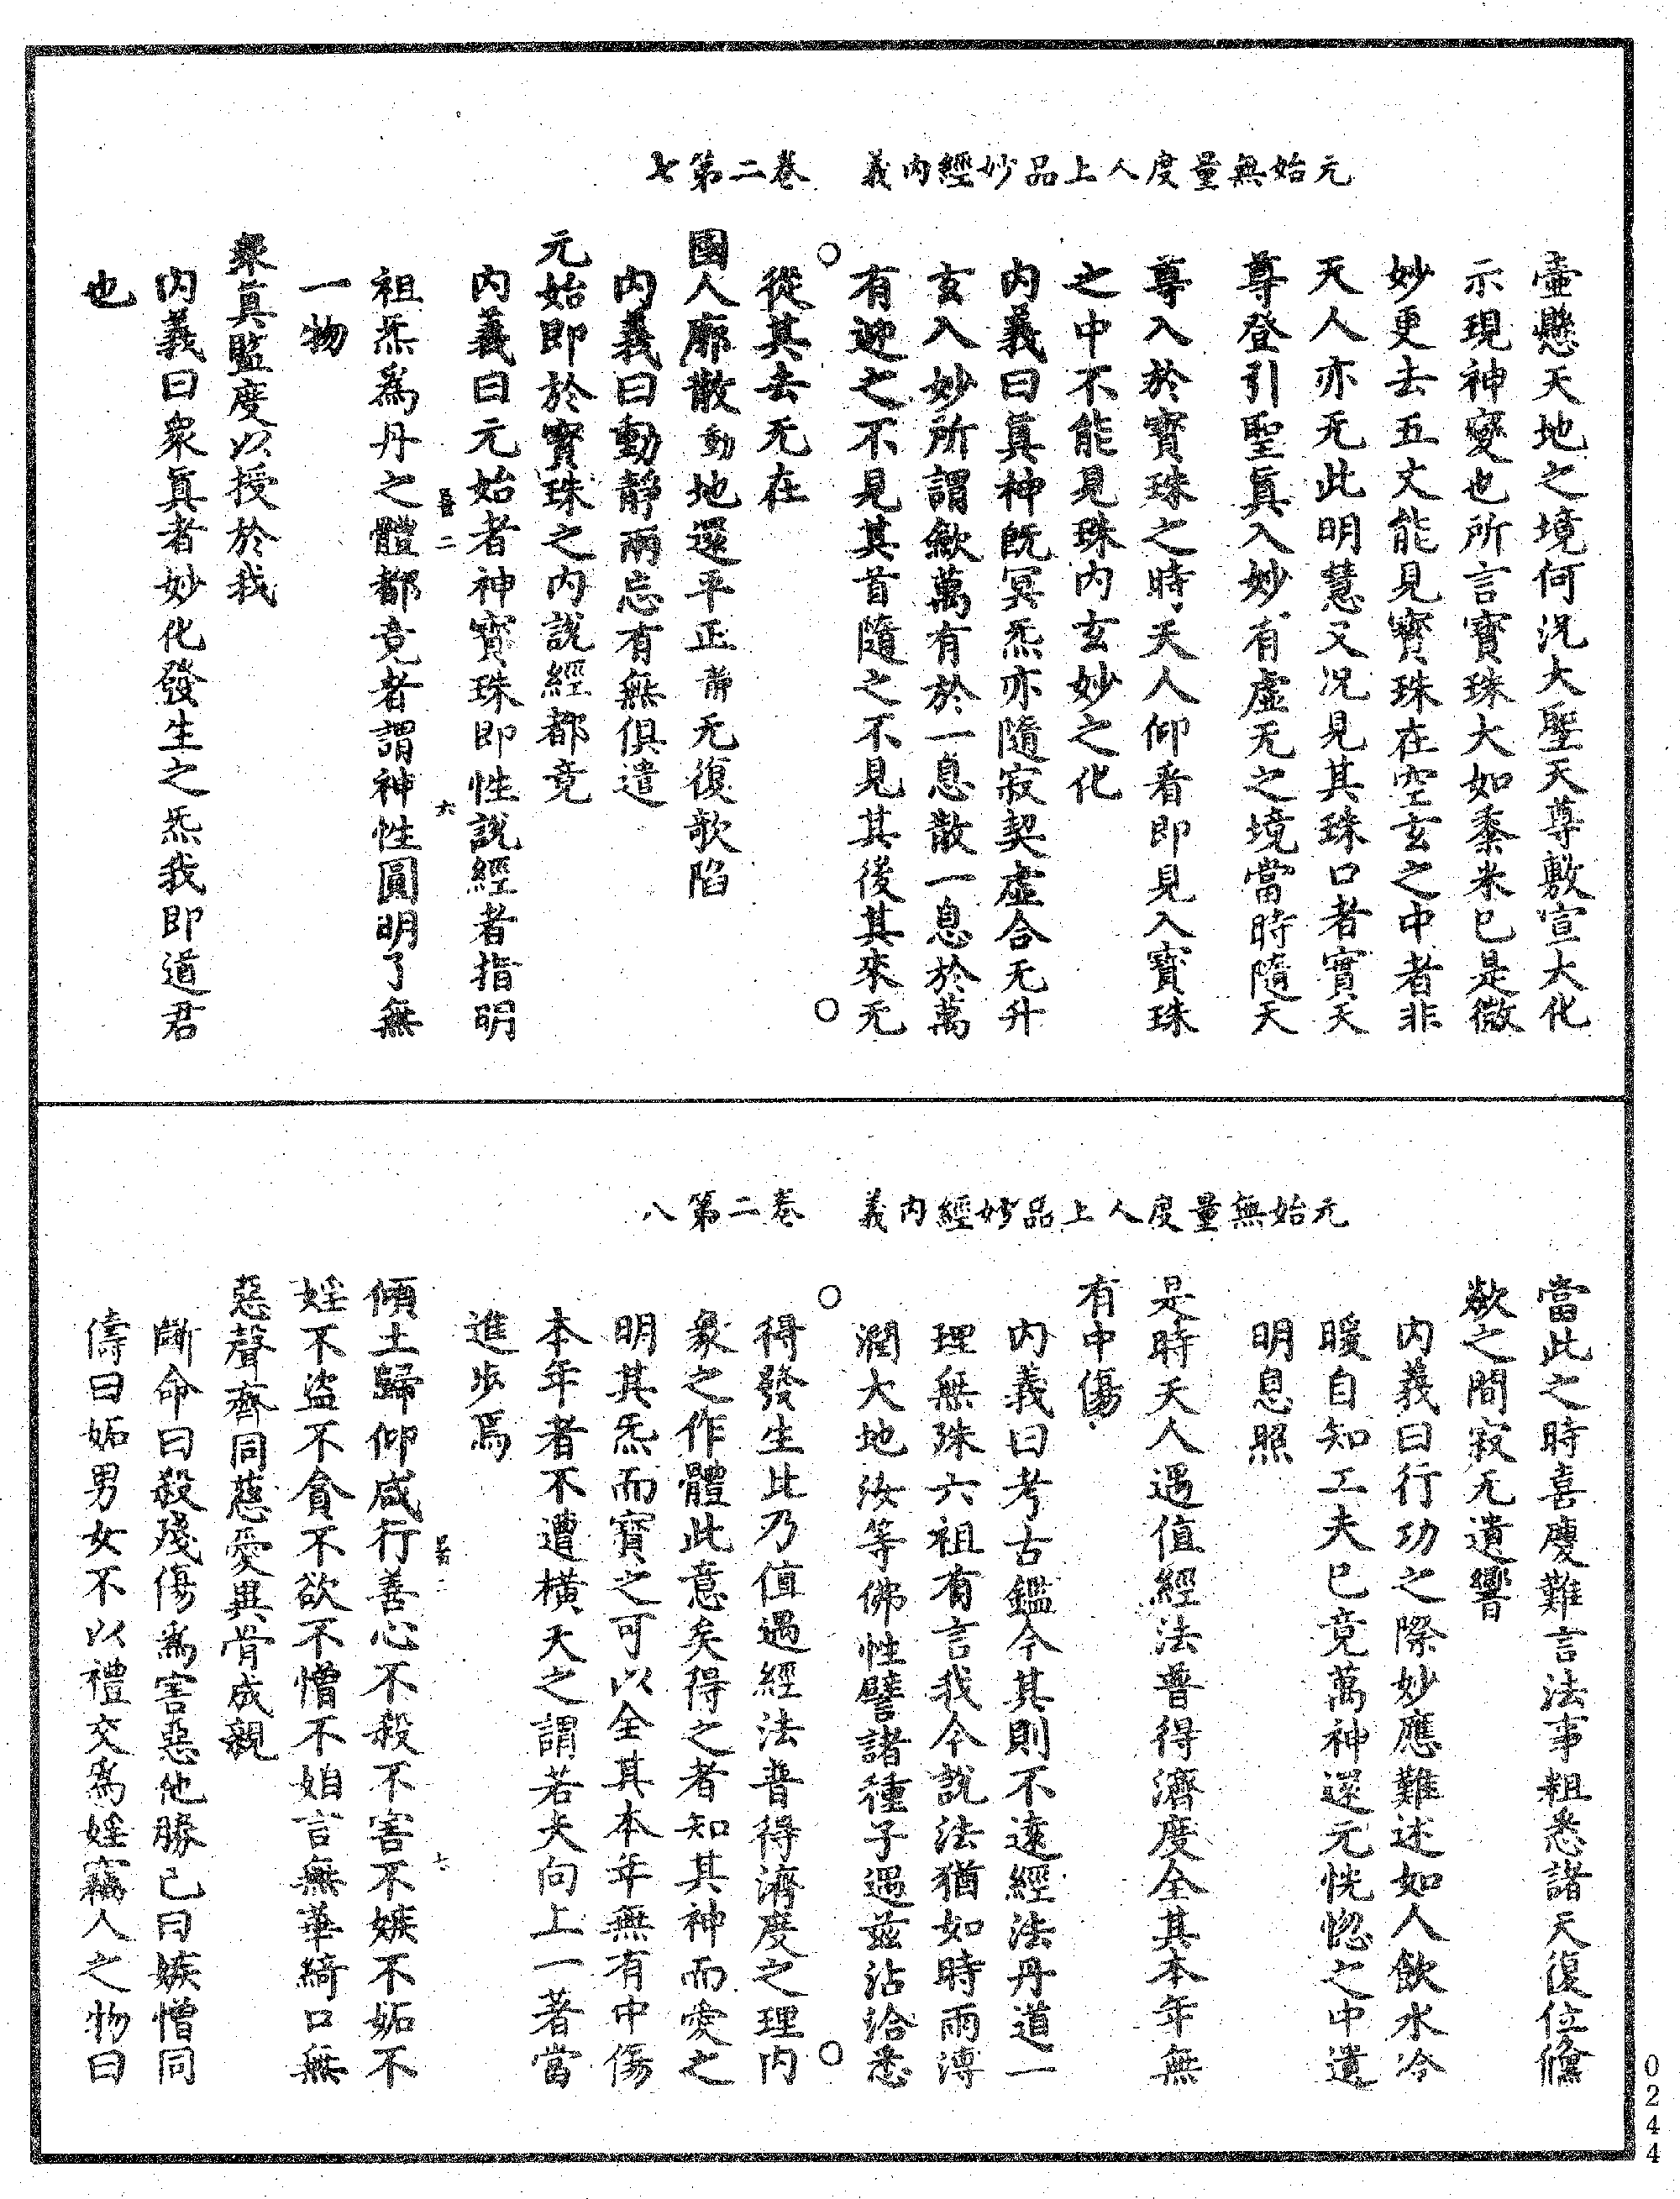 元始無量度人上品妙經內義　卷二第七
壷懸天地之境何況大聖天尊敷宣大化
示現神變也所言寶珠大如黍米已是微
妙更去五丈能見寶珠在空玄之中者非
天人亦无此明慧又况見其珠口者實天
尊登引聖眞入妙有虛无之境當時隨天
尊入於寶珠之時天人仰看即見入寶珠
之中不能見珠内玄妙之化
内義曰眞神旣冥炁亦隨寂契虛合无升
玄入妙所謂歛萬有於一息散一息於萬
有迎之不見其首隨之不見其後其來无
從其去无在
國人廓散動地還平正靜无復欹陷
内義曰動靜兩忘有無俱遣
元始即於寶珠之内說經都竟
内義曰元始者神寶珠即性說經者指明
祖炁爲丹之體都竟者謂神性圓明了無
一物
衆眞監度以授於我
内義曰衆眞者妙化發生之炁我即道君
也
元始無量度人上品妙經內義　卷二第八
當此之時喜慶難言法事粗悉諸天復位儵
欻之間寂无遺響
内義曰行功之際妙應難述如人飲水冷
暖自知工夫已竟萬神還元恍惚之中遺
明息照
是時天人遇值經法普得濟度全其本年無
有中傷
内義曰考古鑑今其則不遠經法丹道一
理無殊六祖有言我今說法猶如時雨溥
潤大地汝等佛性譬諸種子遇兹沾洽悉
得發生此乃值遇經法普得濟度之理内
象之作體此意矣得之者知其神而愛之
明其炁而寶之可以全其本年無有中傷
本年者不遭橫夭之謂若夫向上一著當
進步焉
傾土歸仰咸行善心不殺不害不嫉不妬不
婬不盜不貪不欲不憎不㛐言無華綺口無
惡聲齊同慈愛異骨成親
斷命曰殺殘傷爲害惡他勝己曰嫉憎同
儔曰妬男女不以禮交爲婬竊人之物曰
0244